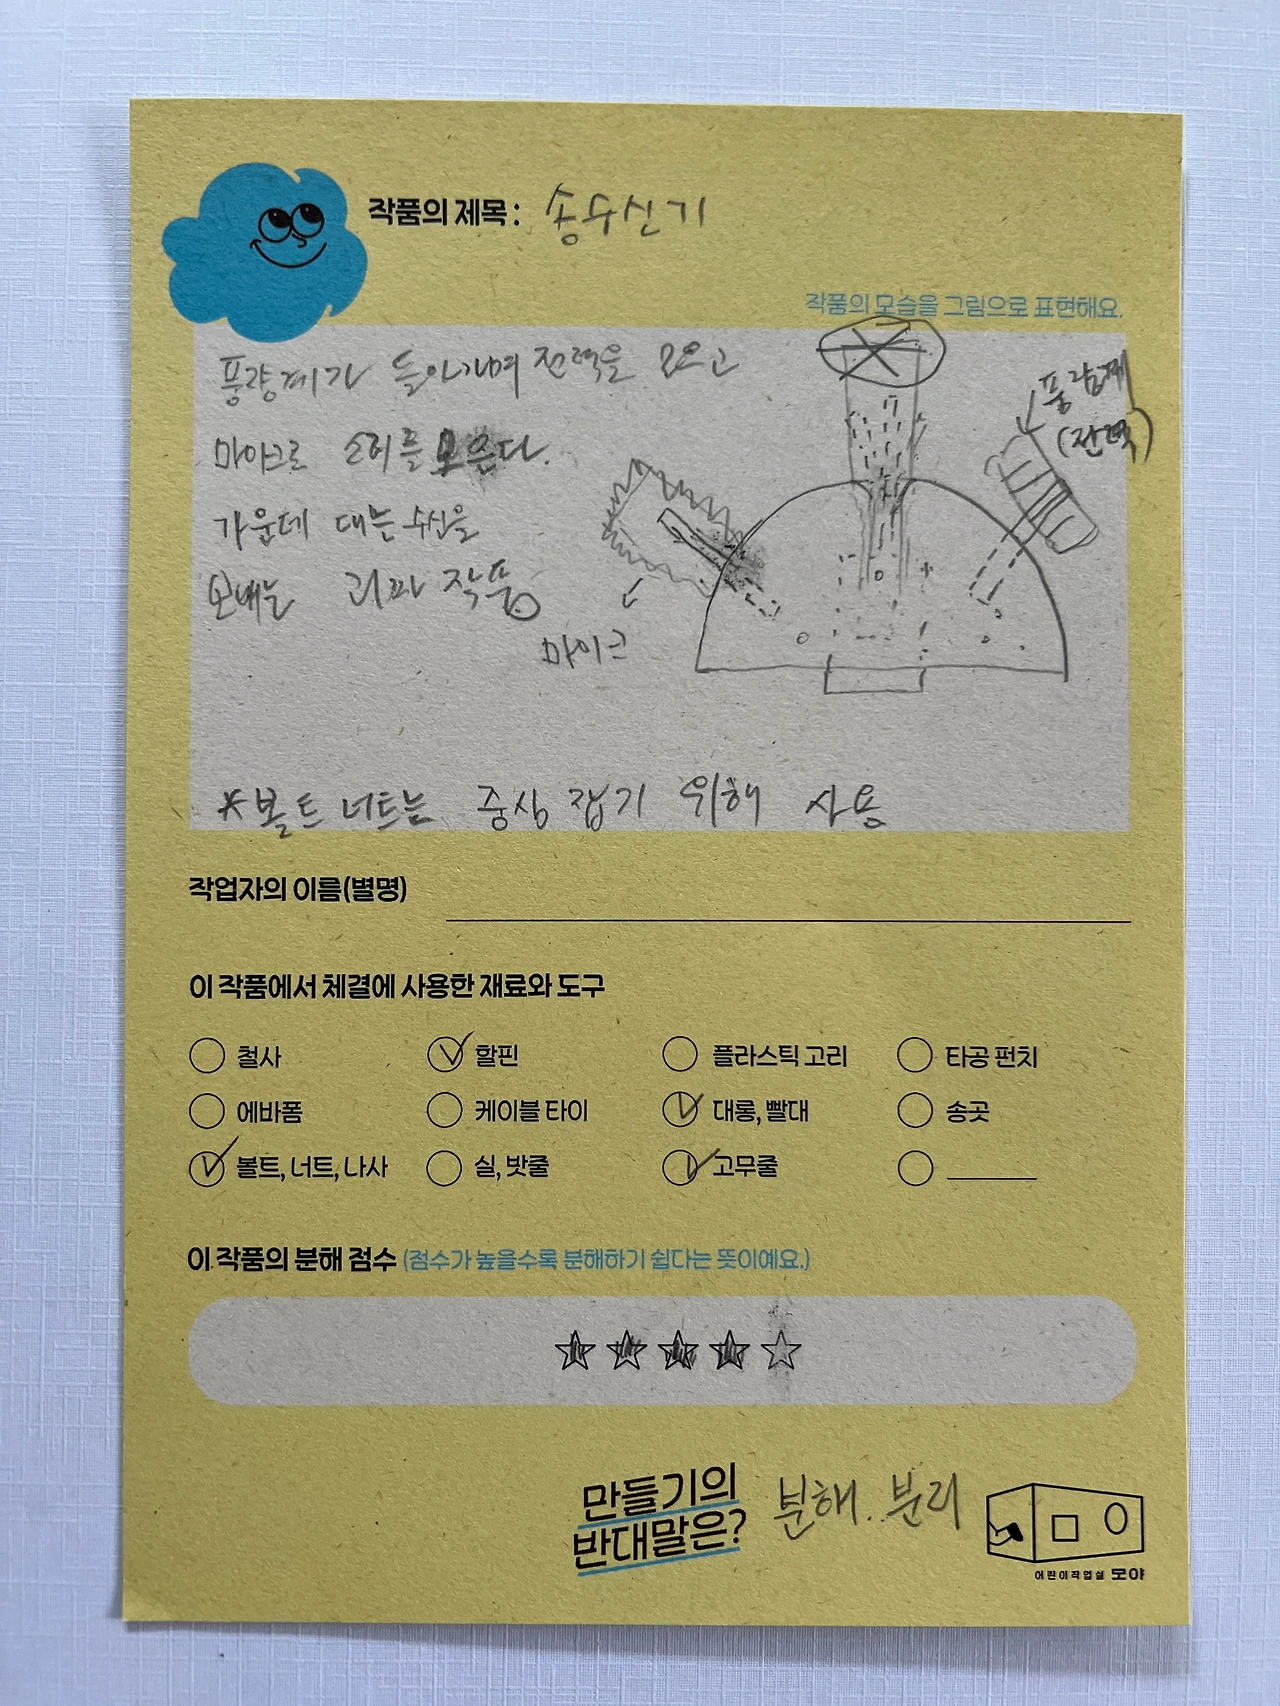 작품의 제목 : 송수신기
작품의 모습을 그림으로 표현해요.
풍량계가 돌아가며 전력을 모으고
마이크로 소리를 모은다.
가운데 대는 수신을
보내는 괴파 작품
풍량계
(전력)
마이크
*볼트 너트는 중심 잡기 위해 사용
작업자의 이름(별명)
이 작품에서 체결에 사용한 재료와 도구
철사 할핀 플라스틱 고리 타공 펀치
에바폼 케이블 타이 대롱, 빨대 송곳
볼트, 너트, 나사 실, 밧줄 고무줄
이 작품의 분해 점수 (점수가 높을수록 분해하기 쉽다는 뜻이예요.)
만들기의
반대말은? 분해. 분리
어린이작업실 모야